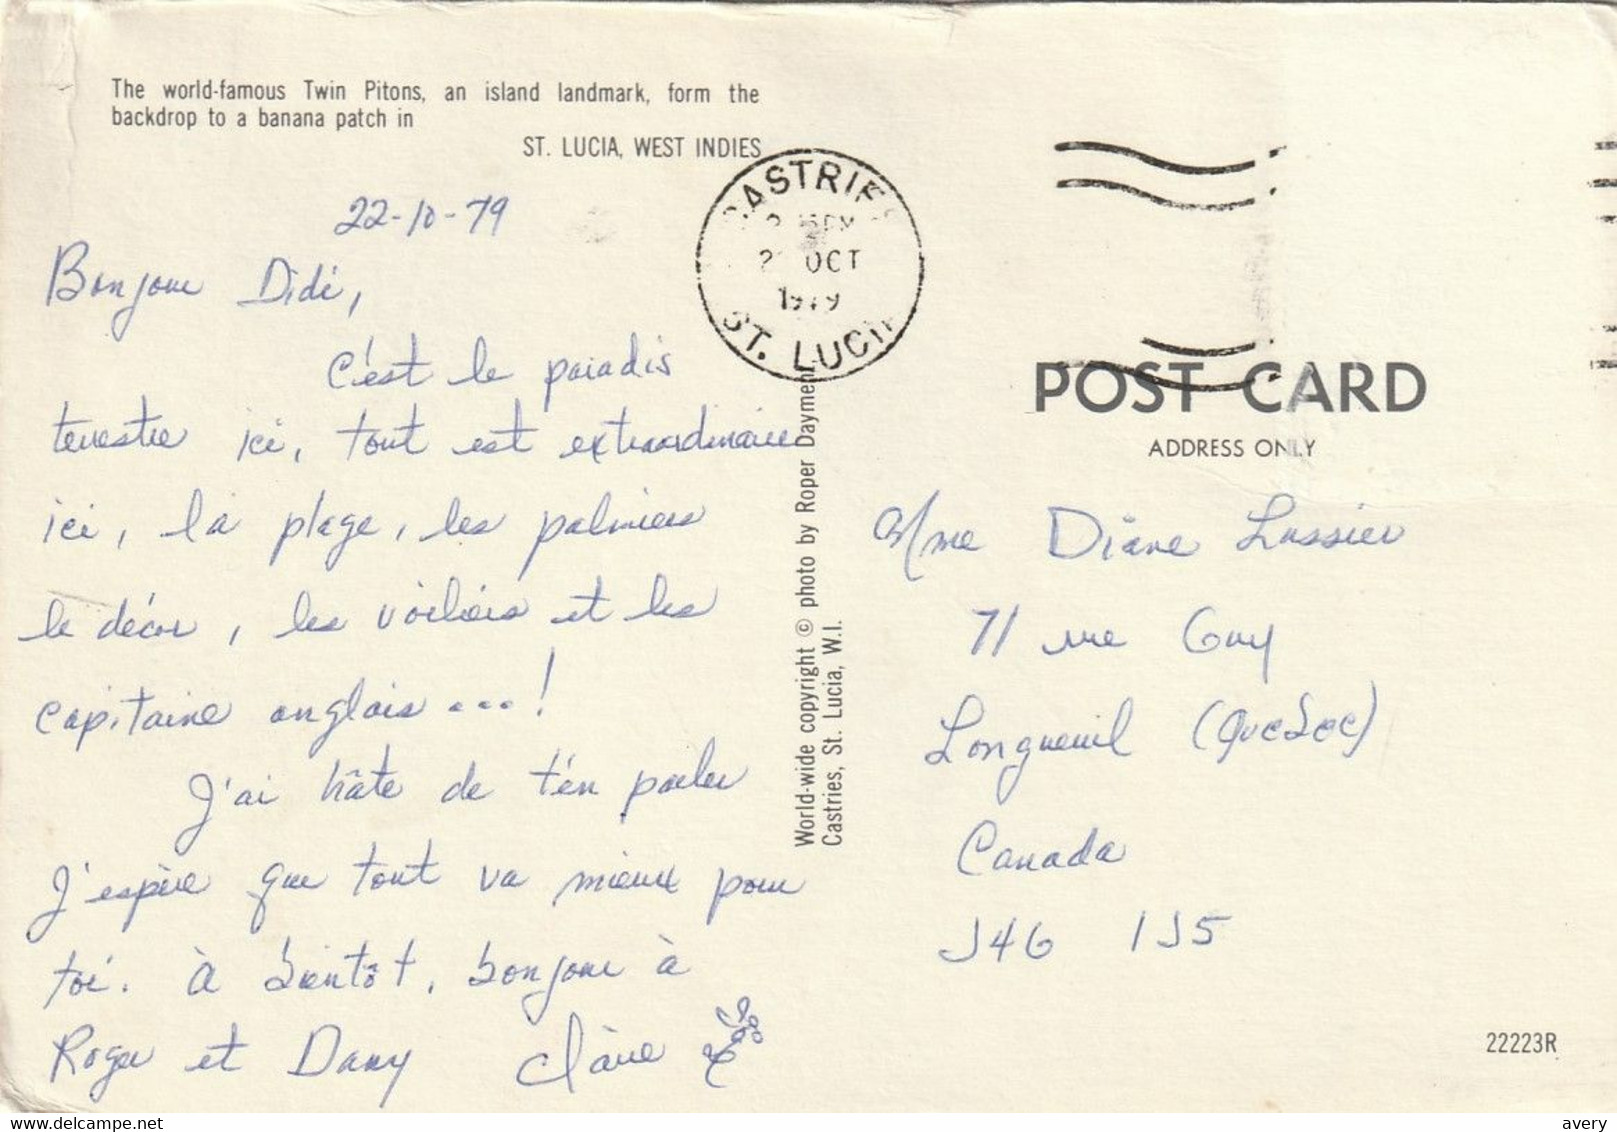 The world-famous Twin Pitons, an island landmark, form the
backdrop to a banana patch in
ST. LUCIA, WEST INDIES
22-10-79
Bonjour Didi,
C'est le paradis
terrestre ici, tout est extraordinaire
ici, la plage, les palmiers
le décor, les voiliers et les
capitaine anglais ...!
J'ai hâte de t'en parler
J'espère que tout va mieux pour
toi. À bientôt, bonjour à
Roger et Dany Claire
CASTRIES
OCT
1979
ST. LUCIA
World-wide copyright © photo by Roper Dayment
Castries, St. Lucia, W.I.
POST CARD
ADDRESS ONLY
Mme Diane Lussier
71 rue Guy
Longueuil (Quebec)
Canada
J4G 1J5
22223R
delcampe.net
avery